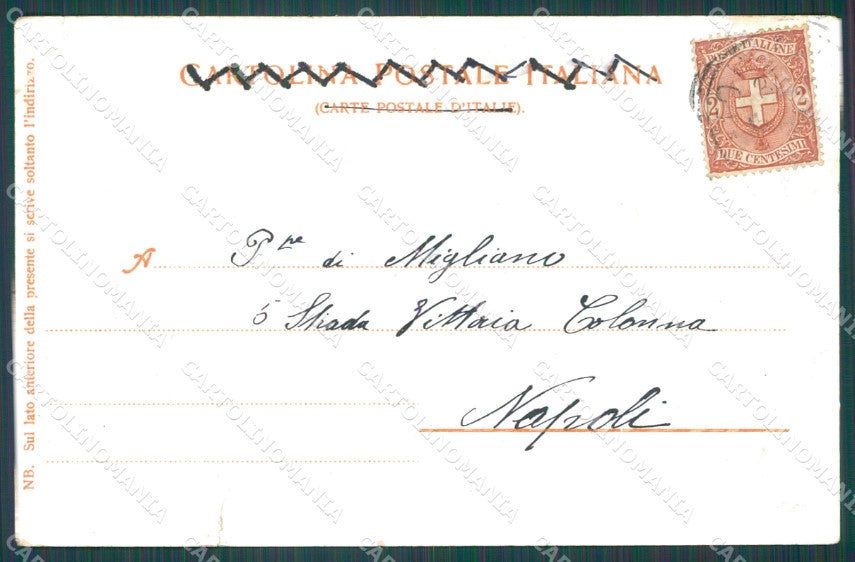 CARTOLINA POSTALE ITALIANA
(CARTE POSTALE D'ITALIE).
POSTE ITALIANE
2 2
DUE CENTESIMI
A Pne di Migliano
5 Strada Vittoria Colonna
Napoli
NB. Sul lato anteriore della presente si scrive soltanto l'indirizzo.
CARTOLINOMANIA